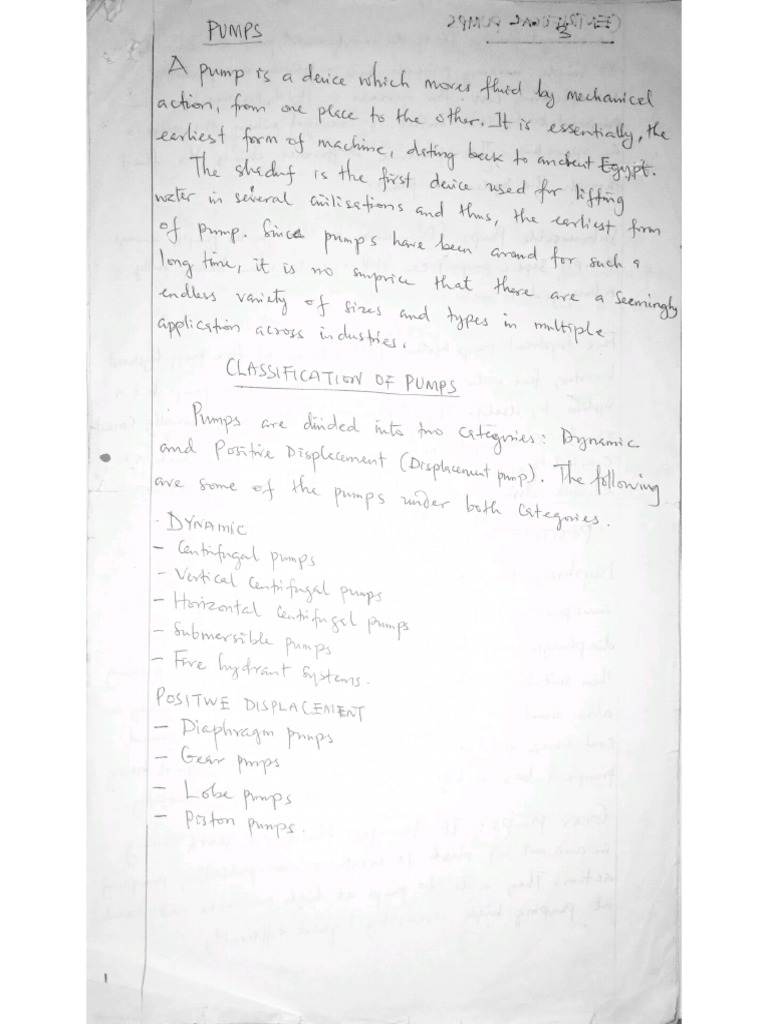 PUMPS
A pump is a device which moves fluid by mechanical
action, from one place to the other. It is essentially, the
earliest form of machine, dating back to ancient Egypt.
The shaduf is the first device used for lifting
water in several civilisations and thus, the earliest form
of pump. Since pumps have been around for such a
long time, it is no surprice that there are a seemingly
endless variety of sizes and types in multiple
application across industries.
CLASSIFICATION OF PUMPS
Pumps are divided into two categories: Dynamic
and Positive Displacement (Displacement pump). The following
are some of the pumps under both categories.
DYNAMIC
- Centrifugal pumps
- Vertical Centrifugal pumps
- Horizontal Centrifugal pumps
- Submersible pumps
- Fire hydrant systems.
POSITIVE DISPLACEMENT
- Diaphragm pumps
- Gear pumps
- Lobe pumps
- Piston pumps.
1